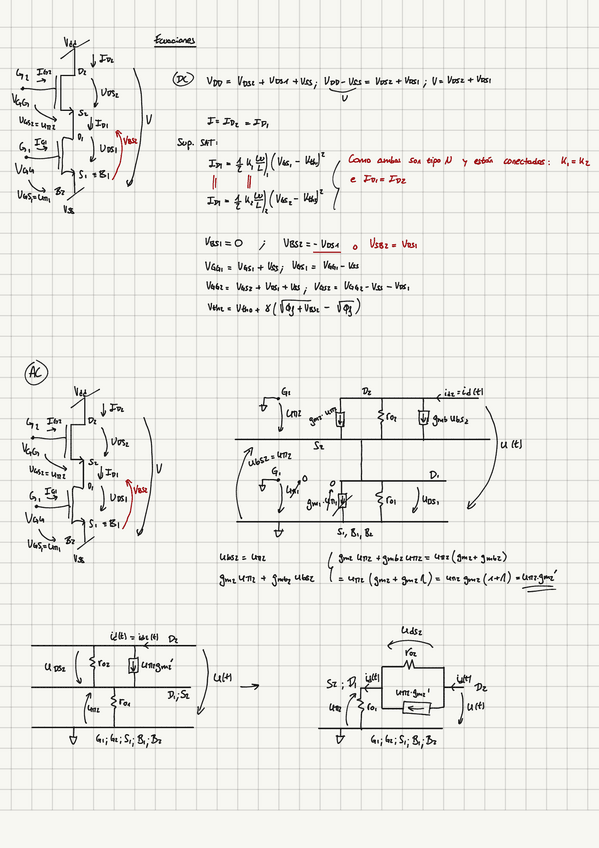 Ecuaciones
Vdd
I_D2
G2 I_G2 D2
V_GG2 V_DS2
V_GS2 = u_π2 S2
D1 I_D1
G1 I_G1 V_DS1 V_BS2 V
V_GG1 S1 = B1
V_GS1 = u_π1 B2
V_SS
DC V_DD = V_DS2 + V_DS1 + V_SS ; V_DD - V_SS = V_DS2 + V_DS1 ; V = V_DS2 + V_DS1
V
I = I_D2 = I_D1
Sup. SAT:
I_D1 = 1/2 K1 W/L)1 (V_GS1 - V_th1)^2
I_D1 = 1/2 K2 W/L)2 (V_GS2 - V_th2)^2
Como ambas son tipo N y están conectadas: K1 = K2
e I_D1 = I_D2
V_BS1 = 0 ; V_BS2 = - V_DS1 o V_SB2 = V_DS1
V_GG1 = V_GS1 + V_SS ; V_GS1 = V_GG1 - V_SS
V_GG2 = V_GS2 + V_DS1 + V_SS ; V_GS2 = V_GG2 - V_SS - V_DS1
V_th2 = V_th0 + γ (√Φf + V_BS2 - √Φf)
AC
Vdd
I_D2
G2 I_G2 D2
V_GG V_DS2
V_GS2 = u_π2 S2
D1 I_D1
G1 I_G1 V_DS1 V_BS2 V
V_GG S1 = B1
V_GS1 = u_π1 B2
V_SS
G1 D2 i_d2 = i_d(t)
u_π2 g_m2 · u_π2 r_o2 g_mb2 u_bs2
S2 u(t)
u_bs2 = u_π2
G1 D1
u_π1 0 0
g_m1 · u_π1 r_o1 u_DS1
S1, B1, B2
u_bs2 = u_π2
g_m2 u_π2 + g_mb2 u_bs2
g_m2 u_π2 + g_mb2 u_π2 = u_π2 (g_m2 + g_mb2)
= u_π2 (g_m2 + g_m2 λ) = u_π2 g_m2 (1+λ) = u_π2 · g_m2'
i_d(t) = i_d2(t) D2
u_DS2 r_o2 u_π2 g_m2' u(t)
D1; S2
u_π2 r_o1
G1; G2; S1; B1; B2
u_ds2
r_o2
S2; D1 i_d(t) i_d(t) D2
u_π2 · g_m2'
u_π2 r_o1 u(t)
G1; G2; S1; B1; B2